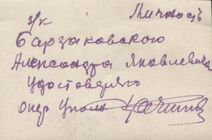 з/к Личность
Барзаковского
Александра Яковлевича
удостоверяю
Опер Уполн